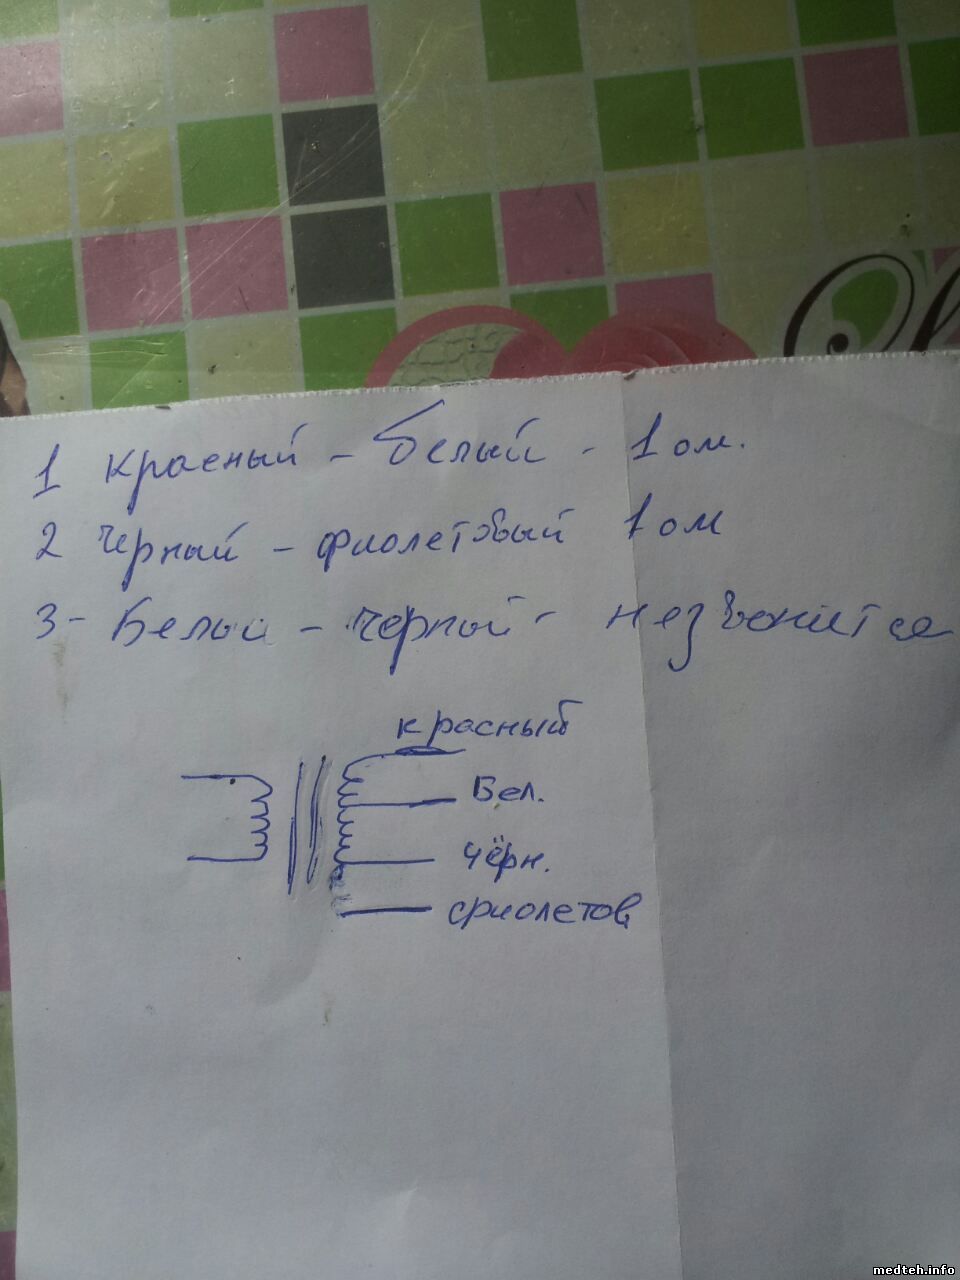 1 красный - белый - 1 ом.
2 черный - фиолетовый 1 ом
3 - белый - черный - незвонится
красный
Бел.
чёрн.
фиолетов
medteh.info